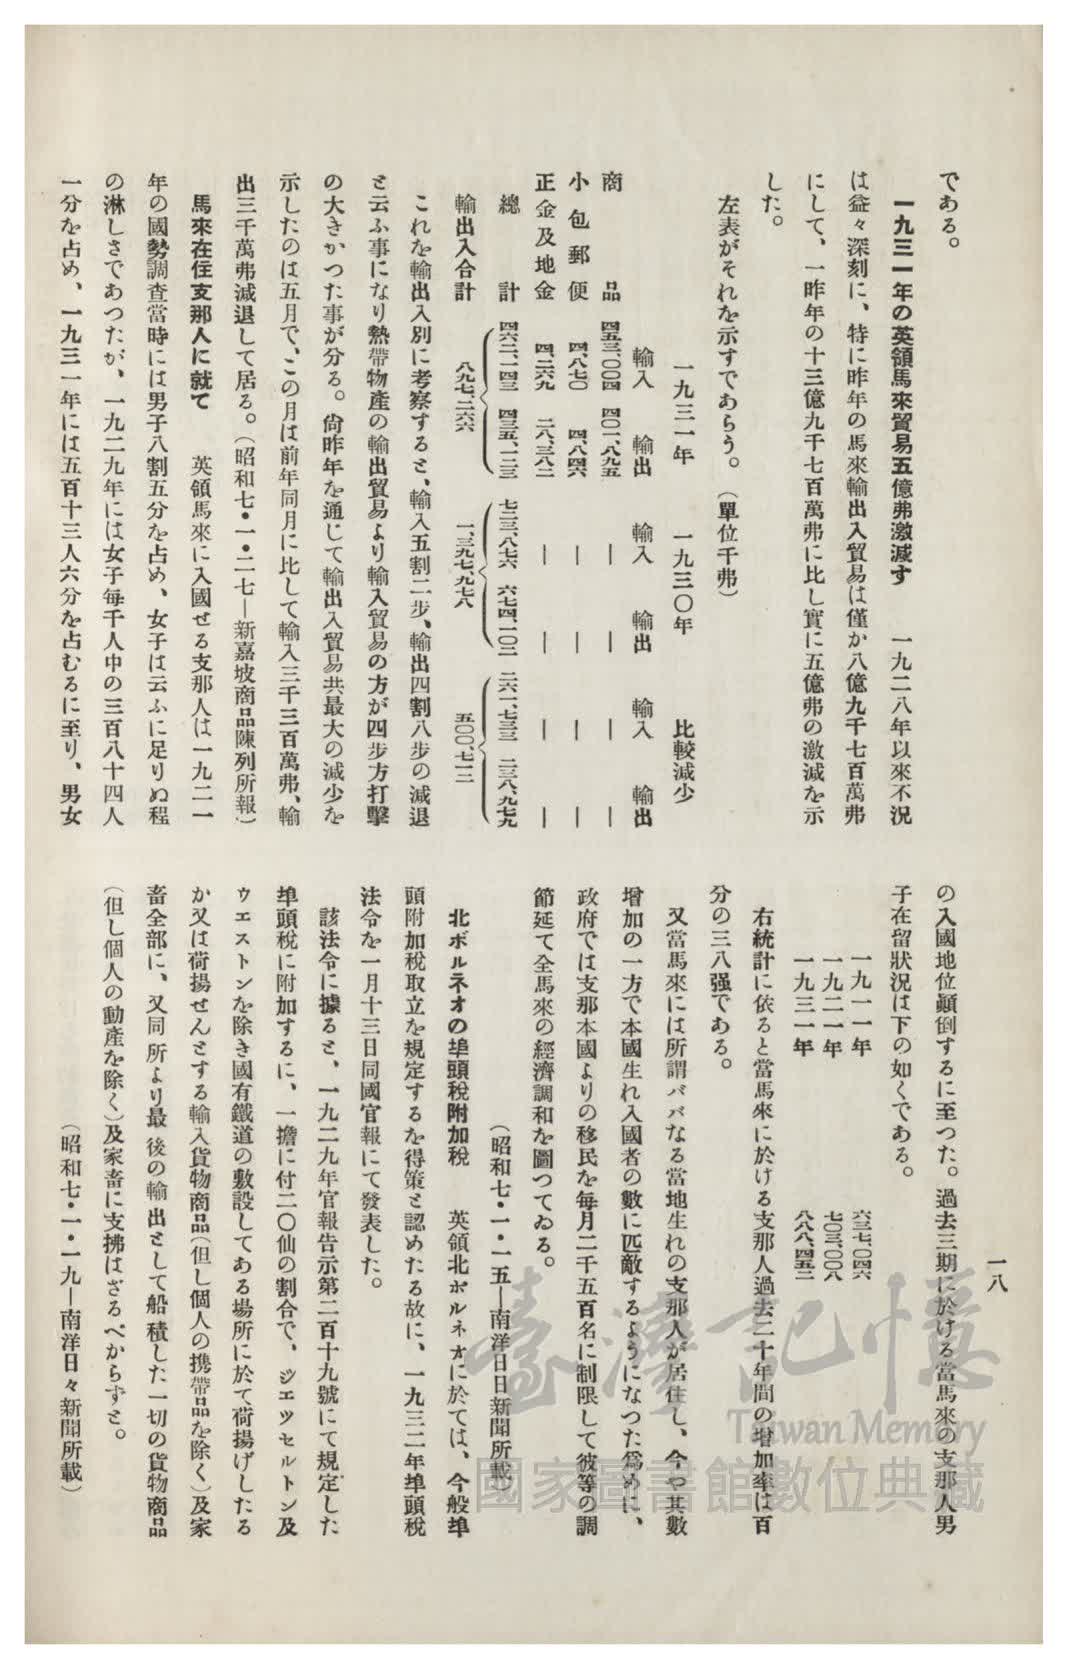 一八
である。
一九三一年の英領馬來貿易五億弗激減す　一九二八年以來不況
は益々深刻に、特に昨年の馬來輸出入貿易は僅か八億九千七百萬弗
にして、一昨年の十三億九千七百萬弗に比し實に五億弗の激減を示
した。
左表がそれを示すであらう。（單位千弗）
一九三一年　一九三〇年　比較減少
輸入　輸出　輸入　輸出　輸入　輸出
商品　四五三、〇〇四　四〇一、八九五　—　—　—　—
小包郵便　四、八七〇　四、八四六　—　—　—　—
正金及地金　四、二六九　二八、三八二　—　—　—　—
總計　四六二、一四三　四三五、一二三　七二三、八七六　六七四、一〇二　二六一、七三三　二三八、九七九
輸出入合計　八九七、二六六　一、三九七、九七八　五〇〇、七一二
これを輸出入別に考察すると、輸入五割二步、輸出四割八步の減退
と云ふ事になり熱帶物產の輸出貿易より輸入貿易の方が四步方打擊
の大きかつた事が分る。尙昨年を通じて輸出入貿易共最大の減少を
示したのは五月で、この月は前年同月に比して輸入三千三百萬弗、輸
出三千萬弗減退して居る。（昭和七・一・二七—新嘉坡商品陳列所報）
馬來在住支那人に就て　英領馬來に入國せる支那人は一九二一
年の國勢調查當時には男子八割五分を占め、女子は云ふに足りぬ程
の淋しさであつたが、一九二九年には女子每千人中の三百八十四人
一分を占め、一九三一年には五百十三人六分を占むるに至り、男女
の入國地位顚倒するに至つた。過去三期に於ける當馬來の支那人男
子在留狀況は下の如くである。
一九一一年　六三七、〇四六
一九二一年　七〇三、〇〇八
一九三一年　八八八、四五二
右統計に依ると當馬來に於ける支那人過去二十年間の增加率は百
分の三八强である。
又當馬來には所謂ババなる當地生れの支那人が居住し、今や其數
增加の一方で本國生れ入國者の數に匹敵するようになつた爲めに、
政府では支那本國よりの移民を每月二千五百名に制限して彼等の調
節延て全馬來の經濟調和を圖つてゐる。
（昭和七・一・一五—南洋日日新聞所載）
北ボルネオの埠頭稅附加稅　英領北ボルネオに於ては、今般埠
頭附加稅取立を規定するを得策と認めたる故に、一九三二年埠頭稅
法令を一月十三日同國官報にて發表した。
該法令に據ると、一九二九年官報吿示第二百十九號にて規定した
埠頭稅に附加するに、一擔に付二〇仙の割合で、ジエツセルトン及
ウエストンを除き國有鐵道の敷設してある場所に於て荷揚げしたる
か又は荷揚せんとする輸入貨物商品（但し個人の携帶品を除く）及家
畜全部に、又同所より最後の輸出として船積した一切の貨物商品
（但し個人の動產を除く）及家畜に支拂はざるべからずと。
（昭和七・一・一九—南洋日々新聞所載）
臺灣記憶
Taiwan Memory
國家圖書館數位典藏